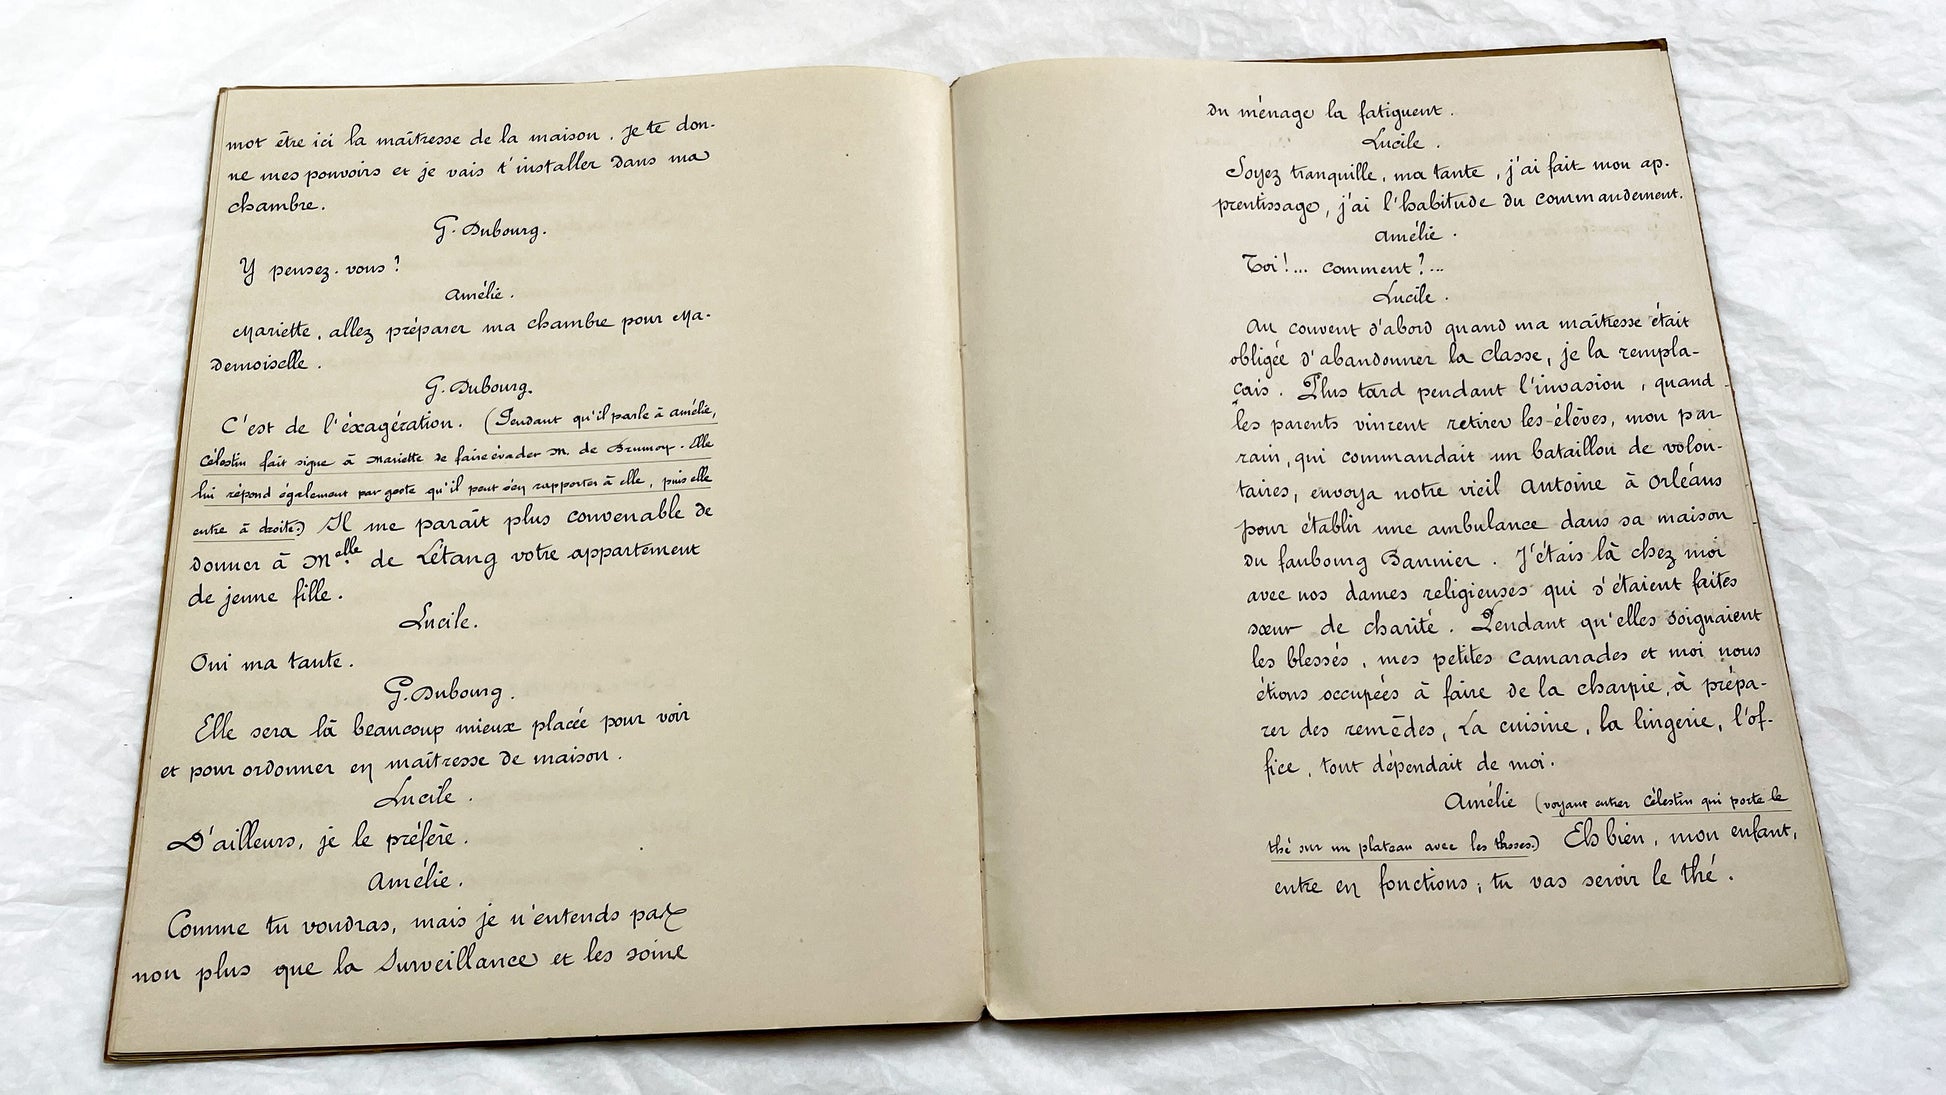 mot être ici la maîtresse de la maison. Je te don-
ne mes pouvoirs et je vais t'installer dans ma
chambre.
G. Dubourg.
Y pensez-vous ?
Amélie.
Mariette, allez préparer ma chambre pour Ma-
demoiselle.
G. Dubourg.
C'est de l'éxagération. (Pendant qu'il parle à Amélie,
Célestin fait signe à Mariette de faire évader M. de Brumoy. Elle
lui répond également par geste qu'il peut s'en rapporter à elle, puis elle
entre à droite.) Il me paraît plus convenable de
donner à Melle de Létang votre appartement
de jeune fille.
Lucile.
Oui ma tante.
G. Dubourg.
Elle sera là beaucoup mieux placée pour voir
et pour ordonner en maîtresse de maison.
Lucile.
D'ailleurs, je le préfère.
Amélie.
Comme tu voudras, mais je n'entends pas
non plus que la Surveillance et les soins
du ménage la fatiguent.
Lucile.
Soyez tranquille, ma tante, j'ai fait mon ap-
prentissage, j'ai l'habitude du commandement.
Amélie.
Toi !... comment ?...
Lucile.
Au couvent d'abord quand ma maîtresse était
obligée d'abandonner la classe, je la rempla-
çais. Plus tard pendant l'invasion, quand
les parents vinrent retirer les élèves, mon par-
rain, qui commandait un bataillon de volon-
taires, envoya notre vieil Antoine à Orléans
pour établir une ambulance dans sa maison
du faubourg Bannier. J'étais là chez moi
avec nos dames religieuses qui s'étaient faites
sœur de charité. Pendant qu'elles soignaient
les blessés, mes petites camarades et moi nous
étions occupées à faire de la charpie, à prépa-
rer des remèdes, La cuisine, la lingerie, l'of-
fice, tout dépendait de moi.
Amélie (voyant entrer Célestin qui porte le
thé sur un plateau avec les tasses.) Eh bien, mon enfant,
entre en fonctions ; tu vas servir le thé.